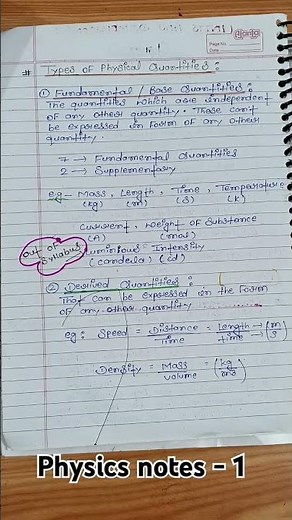 Ajanta
Page No.
Date
# Types of Physical Quantities :
① Fundamental / Base Quantities :
The quantities which are independent
of any other quantity. These can't
be expressed in form of any other
quantity.
7 → Fundamental Quantities
2 → Supplementary
eg - Mass, Length, Time, Temperature
(kg) (m) (s) (K)
Current, Weight of Substance
(A) (mol)
out of syllabus
Luminious Intensity
(candela) (cd)
② Derived Quantities :
That can be expressed in the form
of any other quantity
eg: Speed = Distance / Time = Length / time → (m/s)
Density = Mass / volume = (kg/m3)
Physics notes - 1